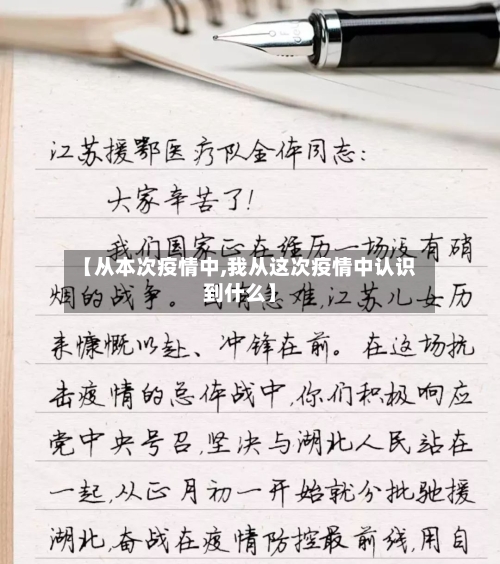 江苏援鄂医疗队全体同志：
大家辛苦了！
我们国家正在经历一场没有硝
【从本次疫情中,我从这次疫情中认识
到什么】
烟的战争。国有急难,江苏儿女历
来慷慨以赴、冲锋在前。在这场抗
击疫情的总体战中,你们积极响应
党中央号召,坚决与湖北人民站在
一起,从正月初一开始就分批驰援
湖北,奋战在疫情防控最前线,用自